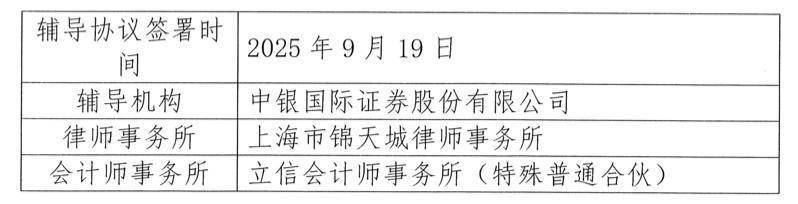 辅导协议签署时
间
2025 年 9 月 19 日
辅导机构
中银国际证券股份有限公司
律师事务所
上海市锦天城律师事务所
会计师事务所
立信会计师事务所（特殊普通合伙）